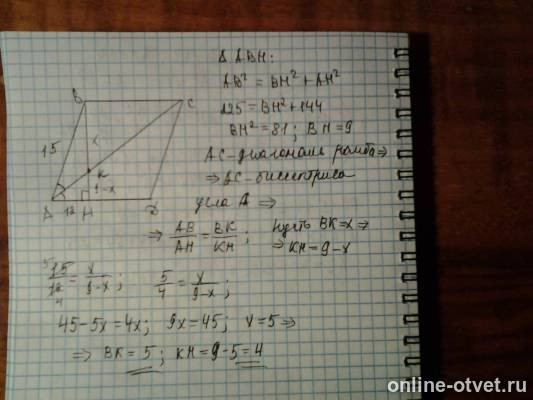 Δ ABH:
AB² = BH² + AH²
225 = BH² + 144
BH² = 81; BH = 9
AC-диагональ ромба ⇒
⇒ AC-биссектриса
угла A ⇒
⇒ AB/AH = BK/KH; Пусть BK = x ⇒
⇒ KH = 9 - x
15/12 = x/9-x; 5/4 = x/9-x;
5 4
45 - 5x = 4x; 9x = 45; x = 5 ⇒
⇒ BK = 5; KH = 9 - 5 = 4
B C
15 x
K
9-x
A 12 H D
online-otvet.ru